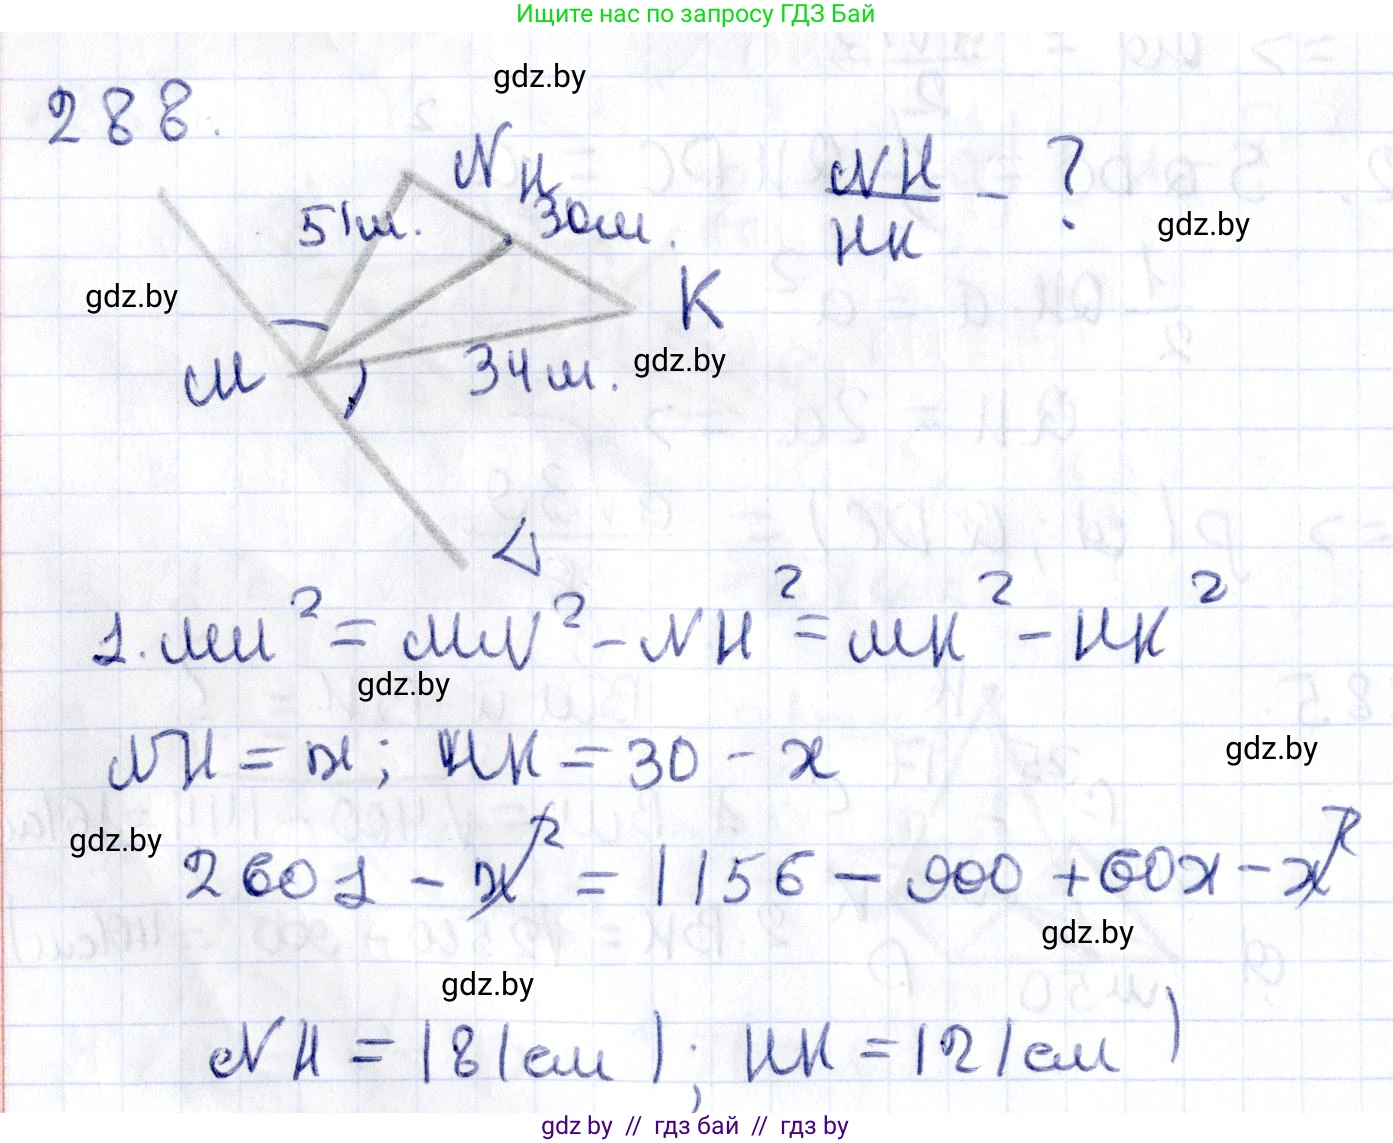 Ищите нас по запросу ГДЗ Бай
gdz.by
288.
N
H
51м.
30м.
NH/HK - ?
gdz.by
gdz.by
K
M
34м.
gdz.by
1. MH² = MN² - NH² = MK² - HK²
gdz.by
NH = x; HK = 30 - x
gdz.by
gdz.by
2601 - x² = 1156 - 900 + 60x - x²
gdz.by
gdz.by
NH = 18(см); HK = 12(см)
gdz by // гдз бай // гдз by